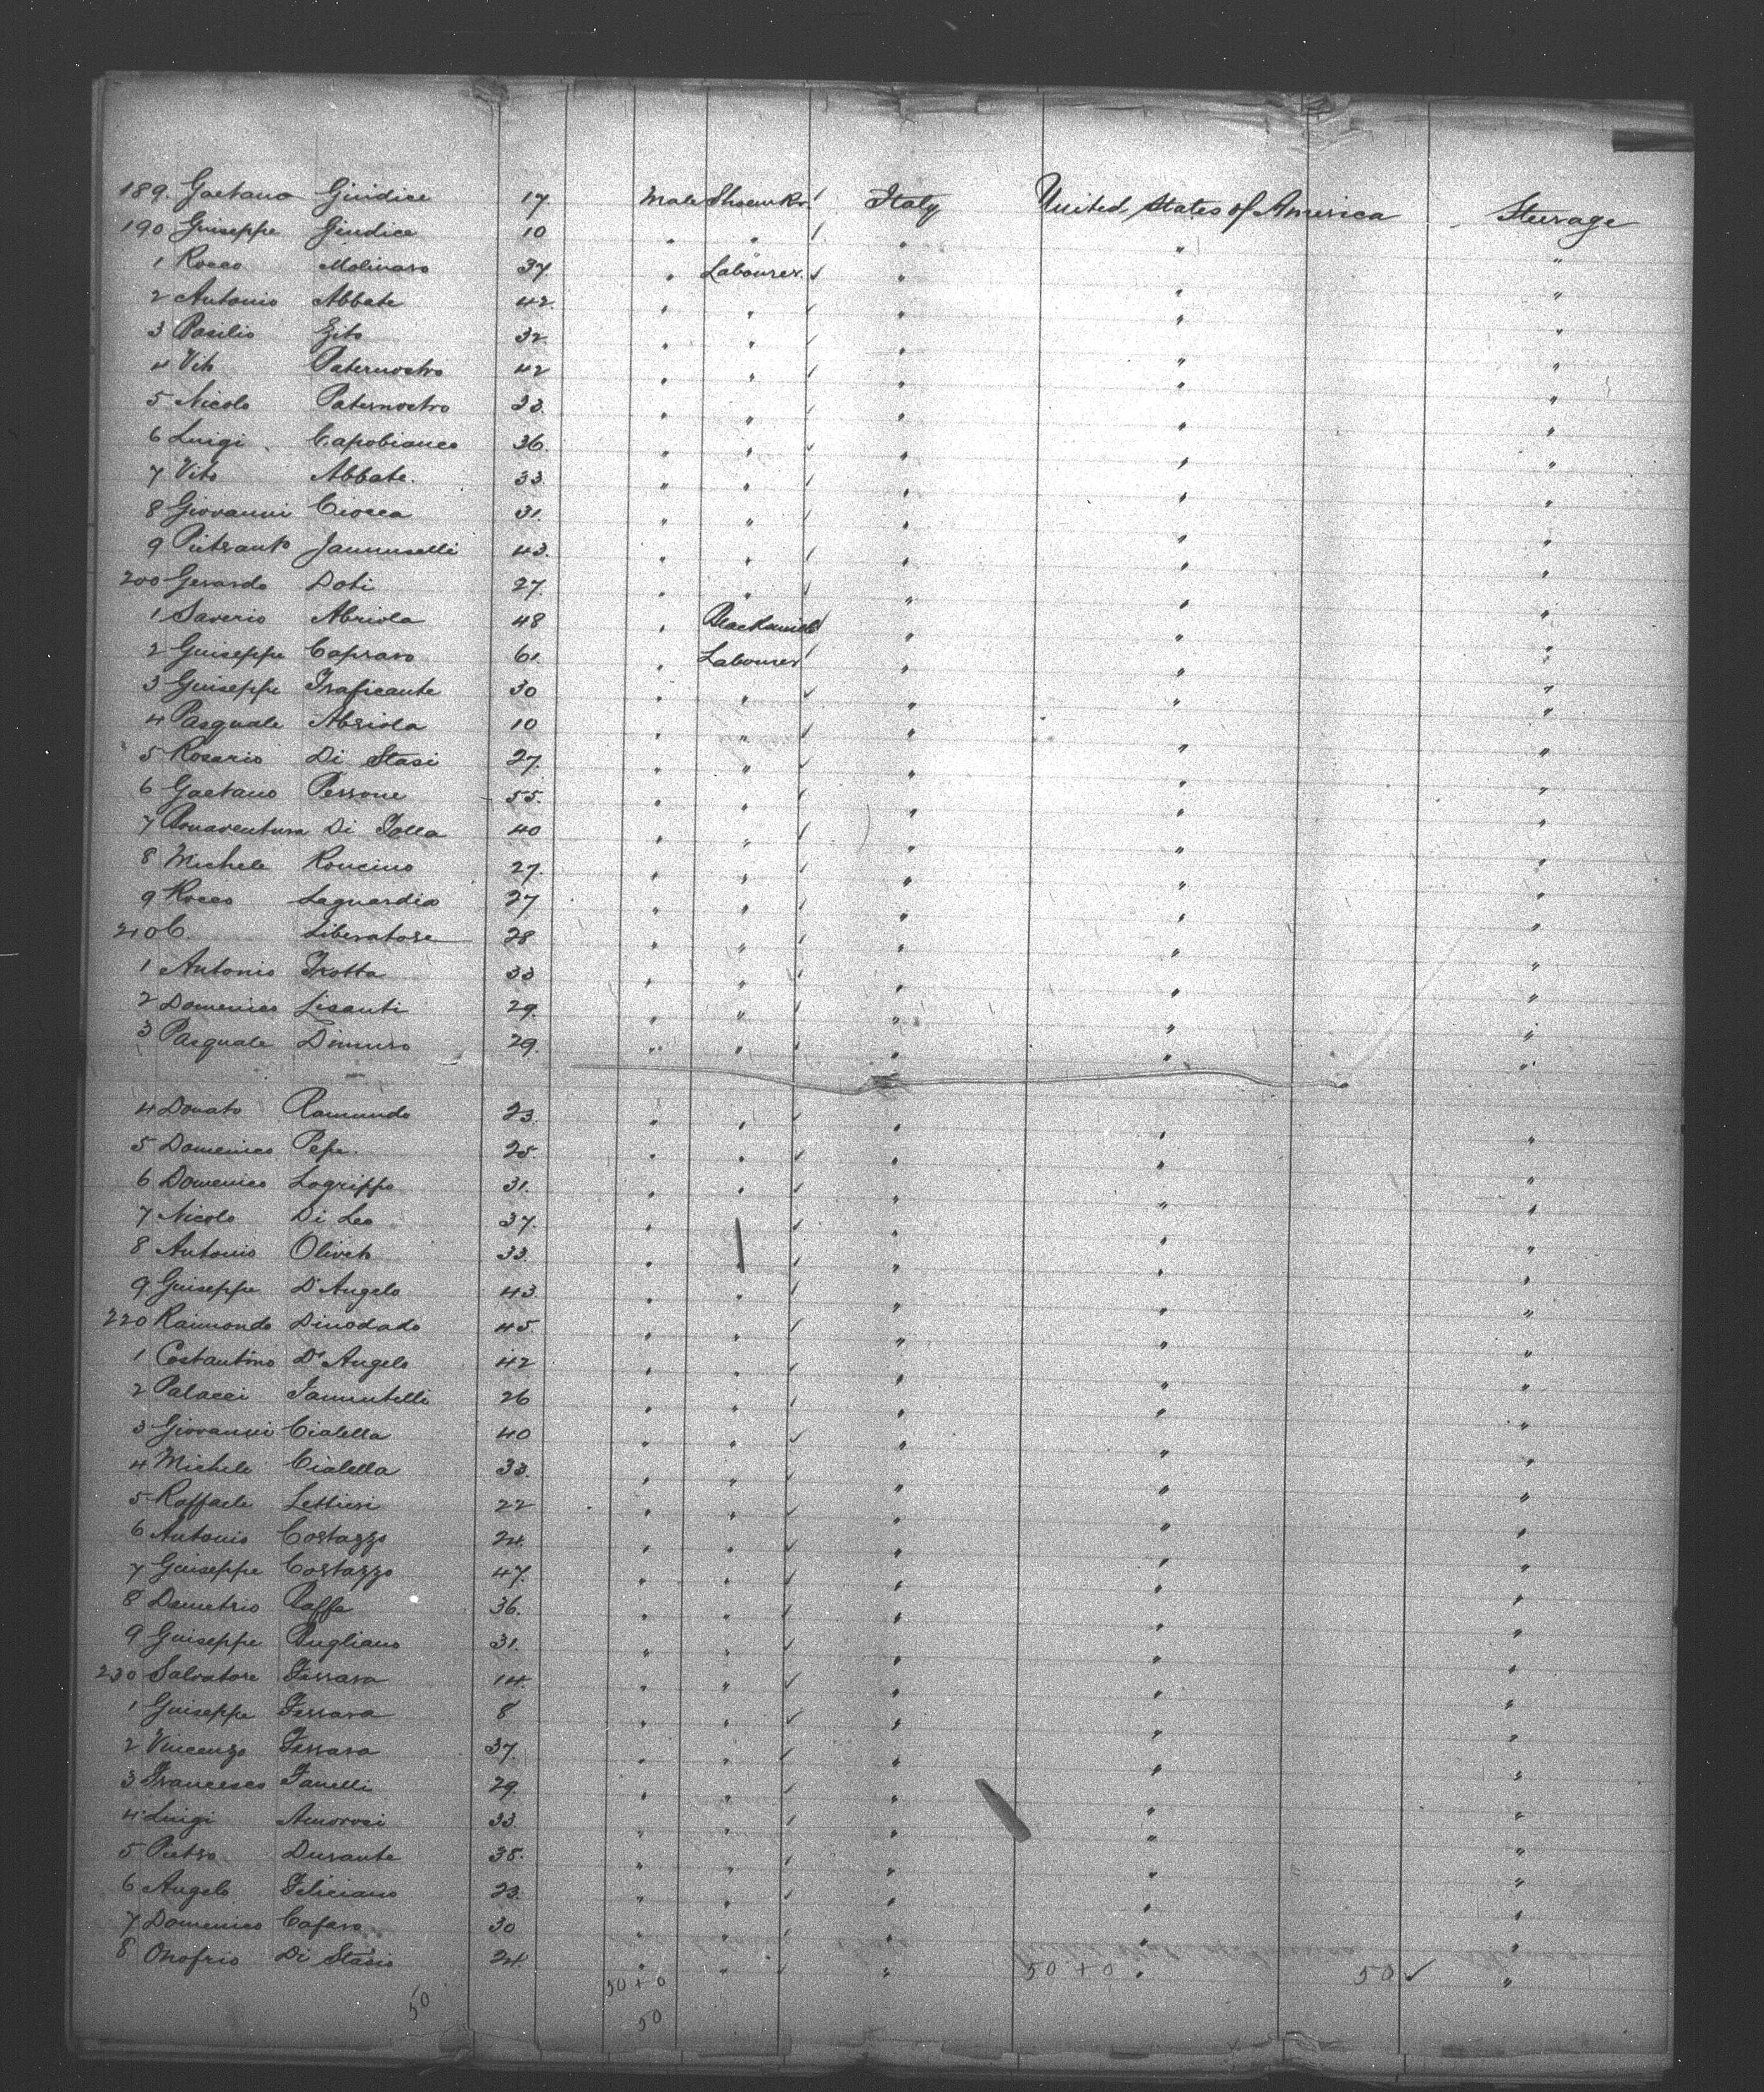 189. Gaetano Giudice 17 Male Shoemkr. Italy United States of America Steerage
190 Guiseppe Giudice 10 " " " " "
1 Rocco Molinaro 37 " Labourer. " " "
2 Antonio Abbate 42 " " " " "
3 Basilio Zito 32 " " " " "
4 Vito Paternostro 42 " " " " "
5 Nicolo Paternostro 23. " " " " "
6 Luigi Capobianco 36. " " " " "
7 Vito Abbate. 33 " " " " "
8 Giovanni Ciocca 31. " " " " "
9 Pietrant° Jannuselli 43. " " " " "
200 Gerardo Doti 27. " " " " "
1 Saverio Abriola 48 " Blacksmith " " "
2 Guiseppe Capraro 61. " Labourer " " "
3 Guiseppe Traficante 30 " " " " "
4 Pasquale Abriola 10 " " " " "
5 Rosario Di Stasi 27. " " " " "
6 Gaetano Perrone 55. " " " " "
7 Bonaventura Di Tolla 40 " " " " "
8 Michele Roncino 27. " " " " "
9 Rocco Laguardia 27 " " " " "
210 C. Liberatore 28 " " " " "
1 Antonio Trotta 33 " " " " "
2 Domenico Lisanti 29. " " " " "
3 Pasquale Dimuro 29. " " " " "
4 Donato Ramundo 23. " " " " "
5 Domenico Pepe. 25. " " " " "
6 Domenico Logrippo 31. " " " " "
7 Nicolo Di Leo 37. " " " " "
8 Antonio Oliveto 33. " " " " "
9. Guiseppe D'Angelo 43. " " " " "
220 Raimondo Dinodado 45. " " " " "
1 Costantino D'Angelo 42 " " " " "
2 Palacci Iannutelli 26 " " " " "
3 Giovanni Cialella 40 " " " " "
4 Michele Cialella 33. " " " " "
5 Raffaele Lettieri 22 " " " " "
6 Antonio Costazzo 24. " " " " "
7 Guiseppe Costazzo 47. " " " " "
8 Demetrio Raffa 36. " " " " "
9 Guiseppe Pugliano 31. " " " " "
230 Salvatore Ferrara 14. " " " " "
1 Guiseppe Ferrara 8 " " " " "
2 Vincenzo Ferrara 37. " " " " "
3 Francesco Fanelli 29. " " " " "
4 Luigi Amorosi 33. " " " " "
5 Pietro Durante 38. " " " " "
6 Angelo Feliciano 23. " " " " "
7 Domenico Cafaro 30 " " " " "
8 Onofrio Di Stasio 24. " " " " "
50 50 + 0 50 + 0 50 ✓
50